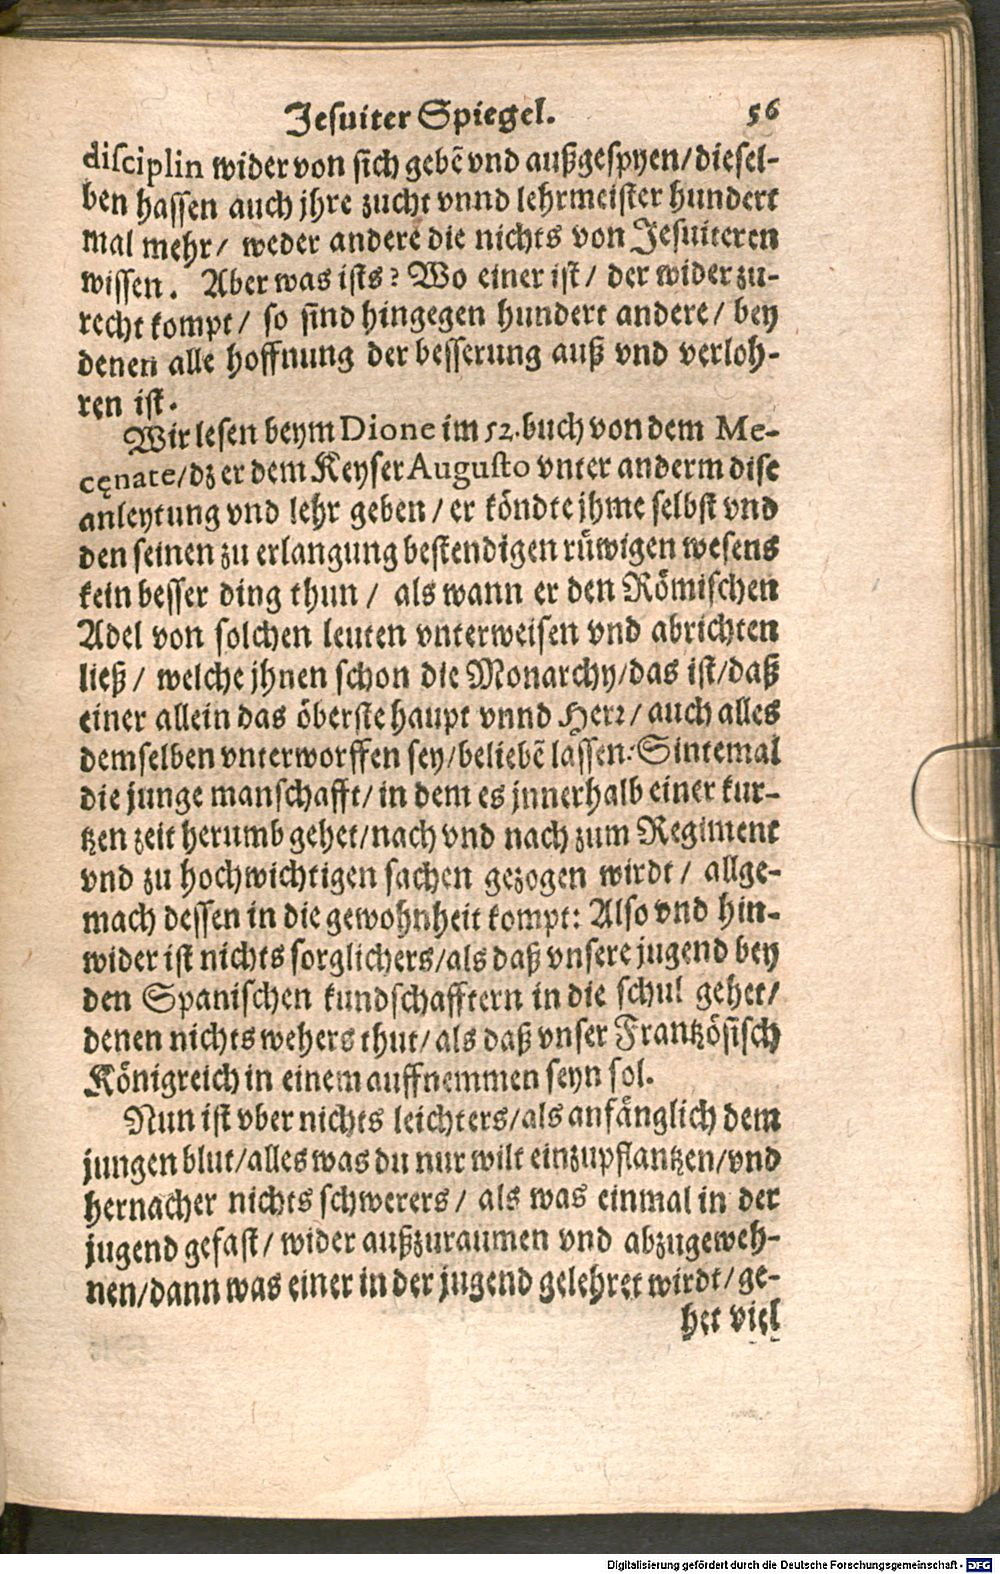 Jesuiter Spiegel. 56
disciplin wider von sich gebẽ vnd außgespyen/diesel-
ben hassen auch jhre zucht vnnd lehrmeister hundert
mal mehr/ weder andere die nichts von Jesuiteren
wissen. Aber was ists? Wo einer ist/ der wider zu-
recht kompt/ so sind hingegen hundert andere/ bey
denen alle hoffnung der besserung auß vnd verloh-
ren ist.
Wir lesen beym Dione im 52. buch von dem Me-
cęnate/dz er dem Keyser Augusto vnter anderm dise
anleytung vnd lehr geben/ er köndte jhme selbst vnd
den seinen zu erlangung bestendigen rüwigen wesens
kein besser ding thun/ als wann er den Römischen
Adel von solchen leuten vnterweisen vnd abrichten
ließ/ welche jhnen schon die Monarchy/das ist/daß
einer allein das öberste haupt vnnd Herr/ auch alles
demselben vnterworffen sey/beliebẽ lassen: Sintemal
die junge manschafft/ in dem es jnnerhalb einer kur-
tzen zeit herumb gehet/nach vnd nach zum Regiment
vnd zu hochwichtigen sachen gezogen wirdt/ allge-
mach dessen in die gewohnheit kompt: Also vnd hin-
wider ist nichts sorglichers/als daß vnsere jugend bey
den Spanischen kundschafftern in die schul gehet/
denen nichts wehers thut/als daß vnser Frantzösisch
Königreich in einem auffnemmen seyn sol.
Nun ist vber nichts leichters/als anfänglich dem
jungen blut/alles was du nur wilt einzupflantzen/vnd
hernacher nichts schwerers/ als was einmal in der
jugend gefast/ wider außzuraumen vnd abzugeweh-
nen/dann was einer in der jugend gelehret wirdt/ge-
het viel
Digitalisierung gefördert durch die Deutsche Forschungsgemeinschaft - DFG